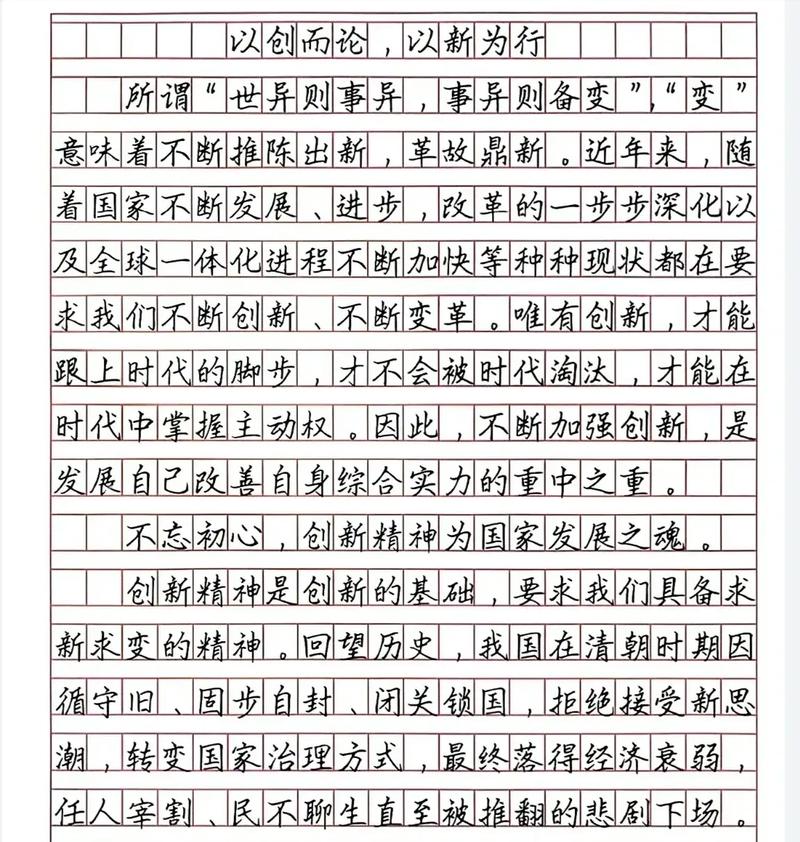 以创而论，以新为行
所谓“世异则事异，事异则备变”，“变”
意味着不断推陈出新，革故鼎新。近年来，随
着国家不断发展、进步，改革的一步步深化以
及全球一体化进程不断加快等种种现状都在要
求我们不断创新、不断变革。唯有创新，才能
跟上时代的脚步，才不会被时代淘汰，才能在
时代中掌握主动权。因此，不断加强创新，是
发展自己改善自身综合实力的重中之重。
不忘初心，创新精神为国家发展之魂。
创新精神是创新的基础，要求我们具备求
新求变的精神。回望历史，我国在清朝时期因
循守旧、固步自封、闭关锁国，拒绝接受新思
潮，转变国家治理方式，最终落得经济衰弱，
任人宰割、民不聊生直至被推翻的悲剧下场。